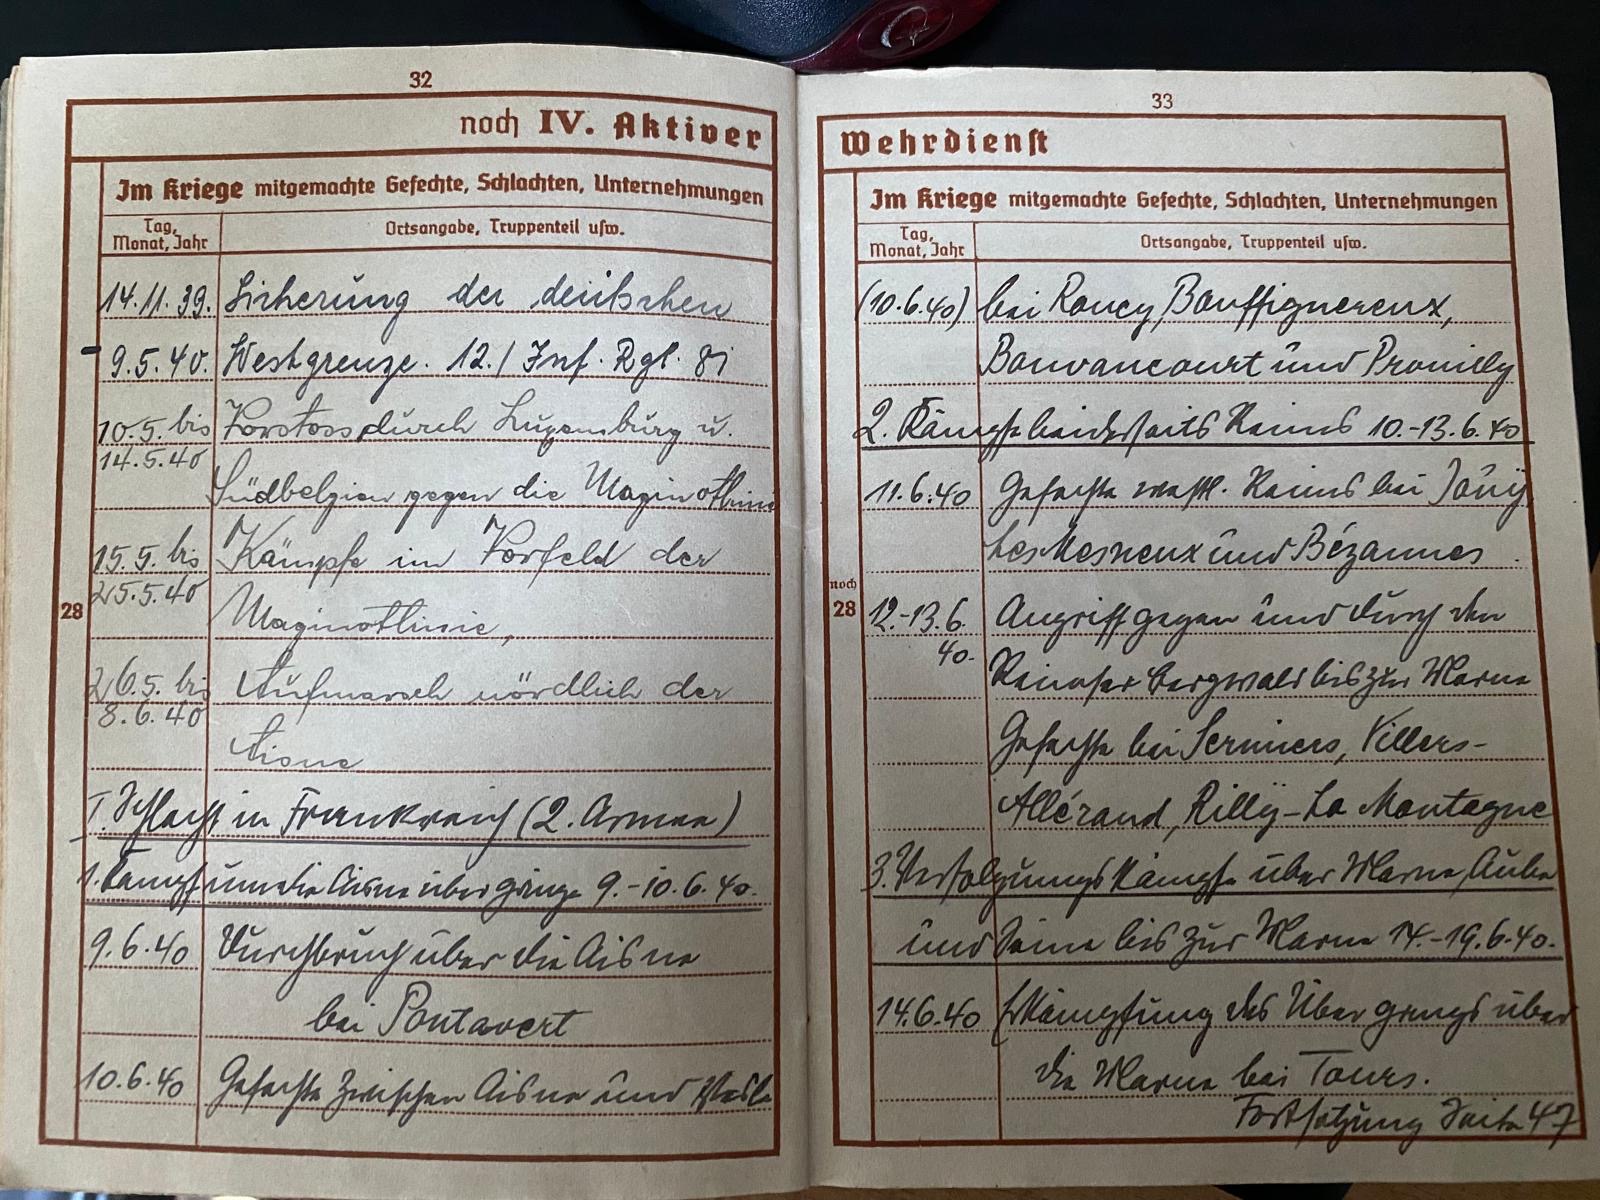 32
noch IV. Aktiver
Im Kriege mitgemachte Gefechte, Schlachten, Unternehmungen
Tag, Monat, Jahr
Ortsangabe, Truppenteil usw.
14.11.39. Sicherung der deutschen
- 9.5.40. Westgrenze. 12./ Inf. Rgt. 81
10.5. bis Vorstoss durch Luxemburg u.
14.5.40
Südbelgien gegen die Maginotlinie
15.5. bis Kämpfe im Vorfeld der
25.5.40
28
Maginotlinie,
26.5. bis Aufmarsch nördlich der
8.6.40
Aisne
I. Schlacht in Frankreich (2. Armee)
1. Kampf um die Aisneübergänge 9.-10.6.40.
9.6.40 Durchbruch über die Aisne
bei Pontavert
10.6.40 Gefechte zwischen Aisne und Vesle
33
Wehrdienst
Im Kriege mitgemachte Gefechte, Schlachten, Unternehmungen
Tag, Monat, Jahr
Ortsangabe, Truppenteil usw.
(10.6.40) bei Roucy, Bouffignereux,
Bouvancourt und Prouilly
2. Kämpfe beiderseits Reims 10.-13.6.40
11.6.40 Gefechte westl. Reims bei Jouy,
Les Mesneux und Bézannes.
noch
28
12.-13.6. Angriff gegen und durch den
40.
Reimser Bergwald bis zur Marne
Gefechte bei Sermiers, Villers-
Allérand, Rilly-La Montagne
3. Verfolgungskämpfe über Marne, Aube
und Seine bis zur Marne 14.-19.6.40.
14.6.40 Erkämpfung des Übergangs über
die Marne bei Tours.
Fortsetzung Seite 47